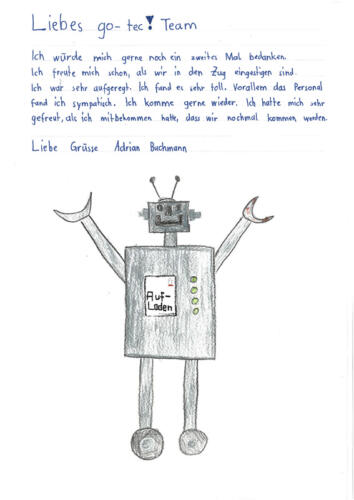 Liebes go-tec! Team
Ich würde mich gerne noch ein zweites Mal bedanken.
Ich freute mich schon, als wir in den Zug eingestigen sind.
Ich war sehr aufgeregt. Ich fand es sehr toll. Vorallem das Personal
fand ich sympatisch. Ich komme gerne wieder. Ich hatte mich sehr
gefreut, als ich mitbekommen hatte, dass wir nochmal kommen werden.
Liebe Grüsse Adrian Buchmann
Auf-
Laden